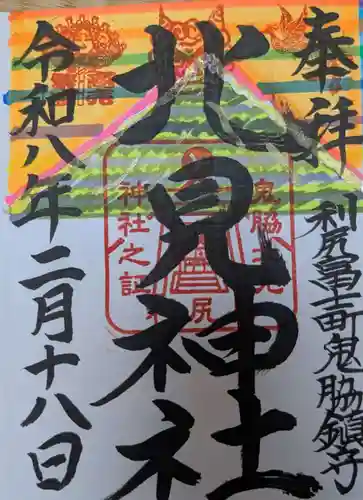 奉拝
利尻富士町鬼脇鎮守
北見神社
令和八年二月十八日
鬼脇北見
神社之証
利尻